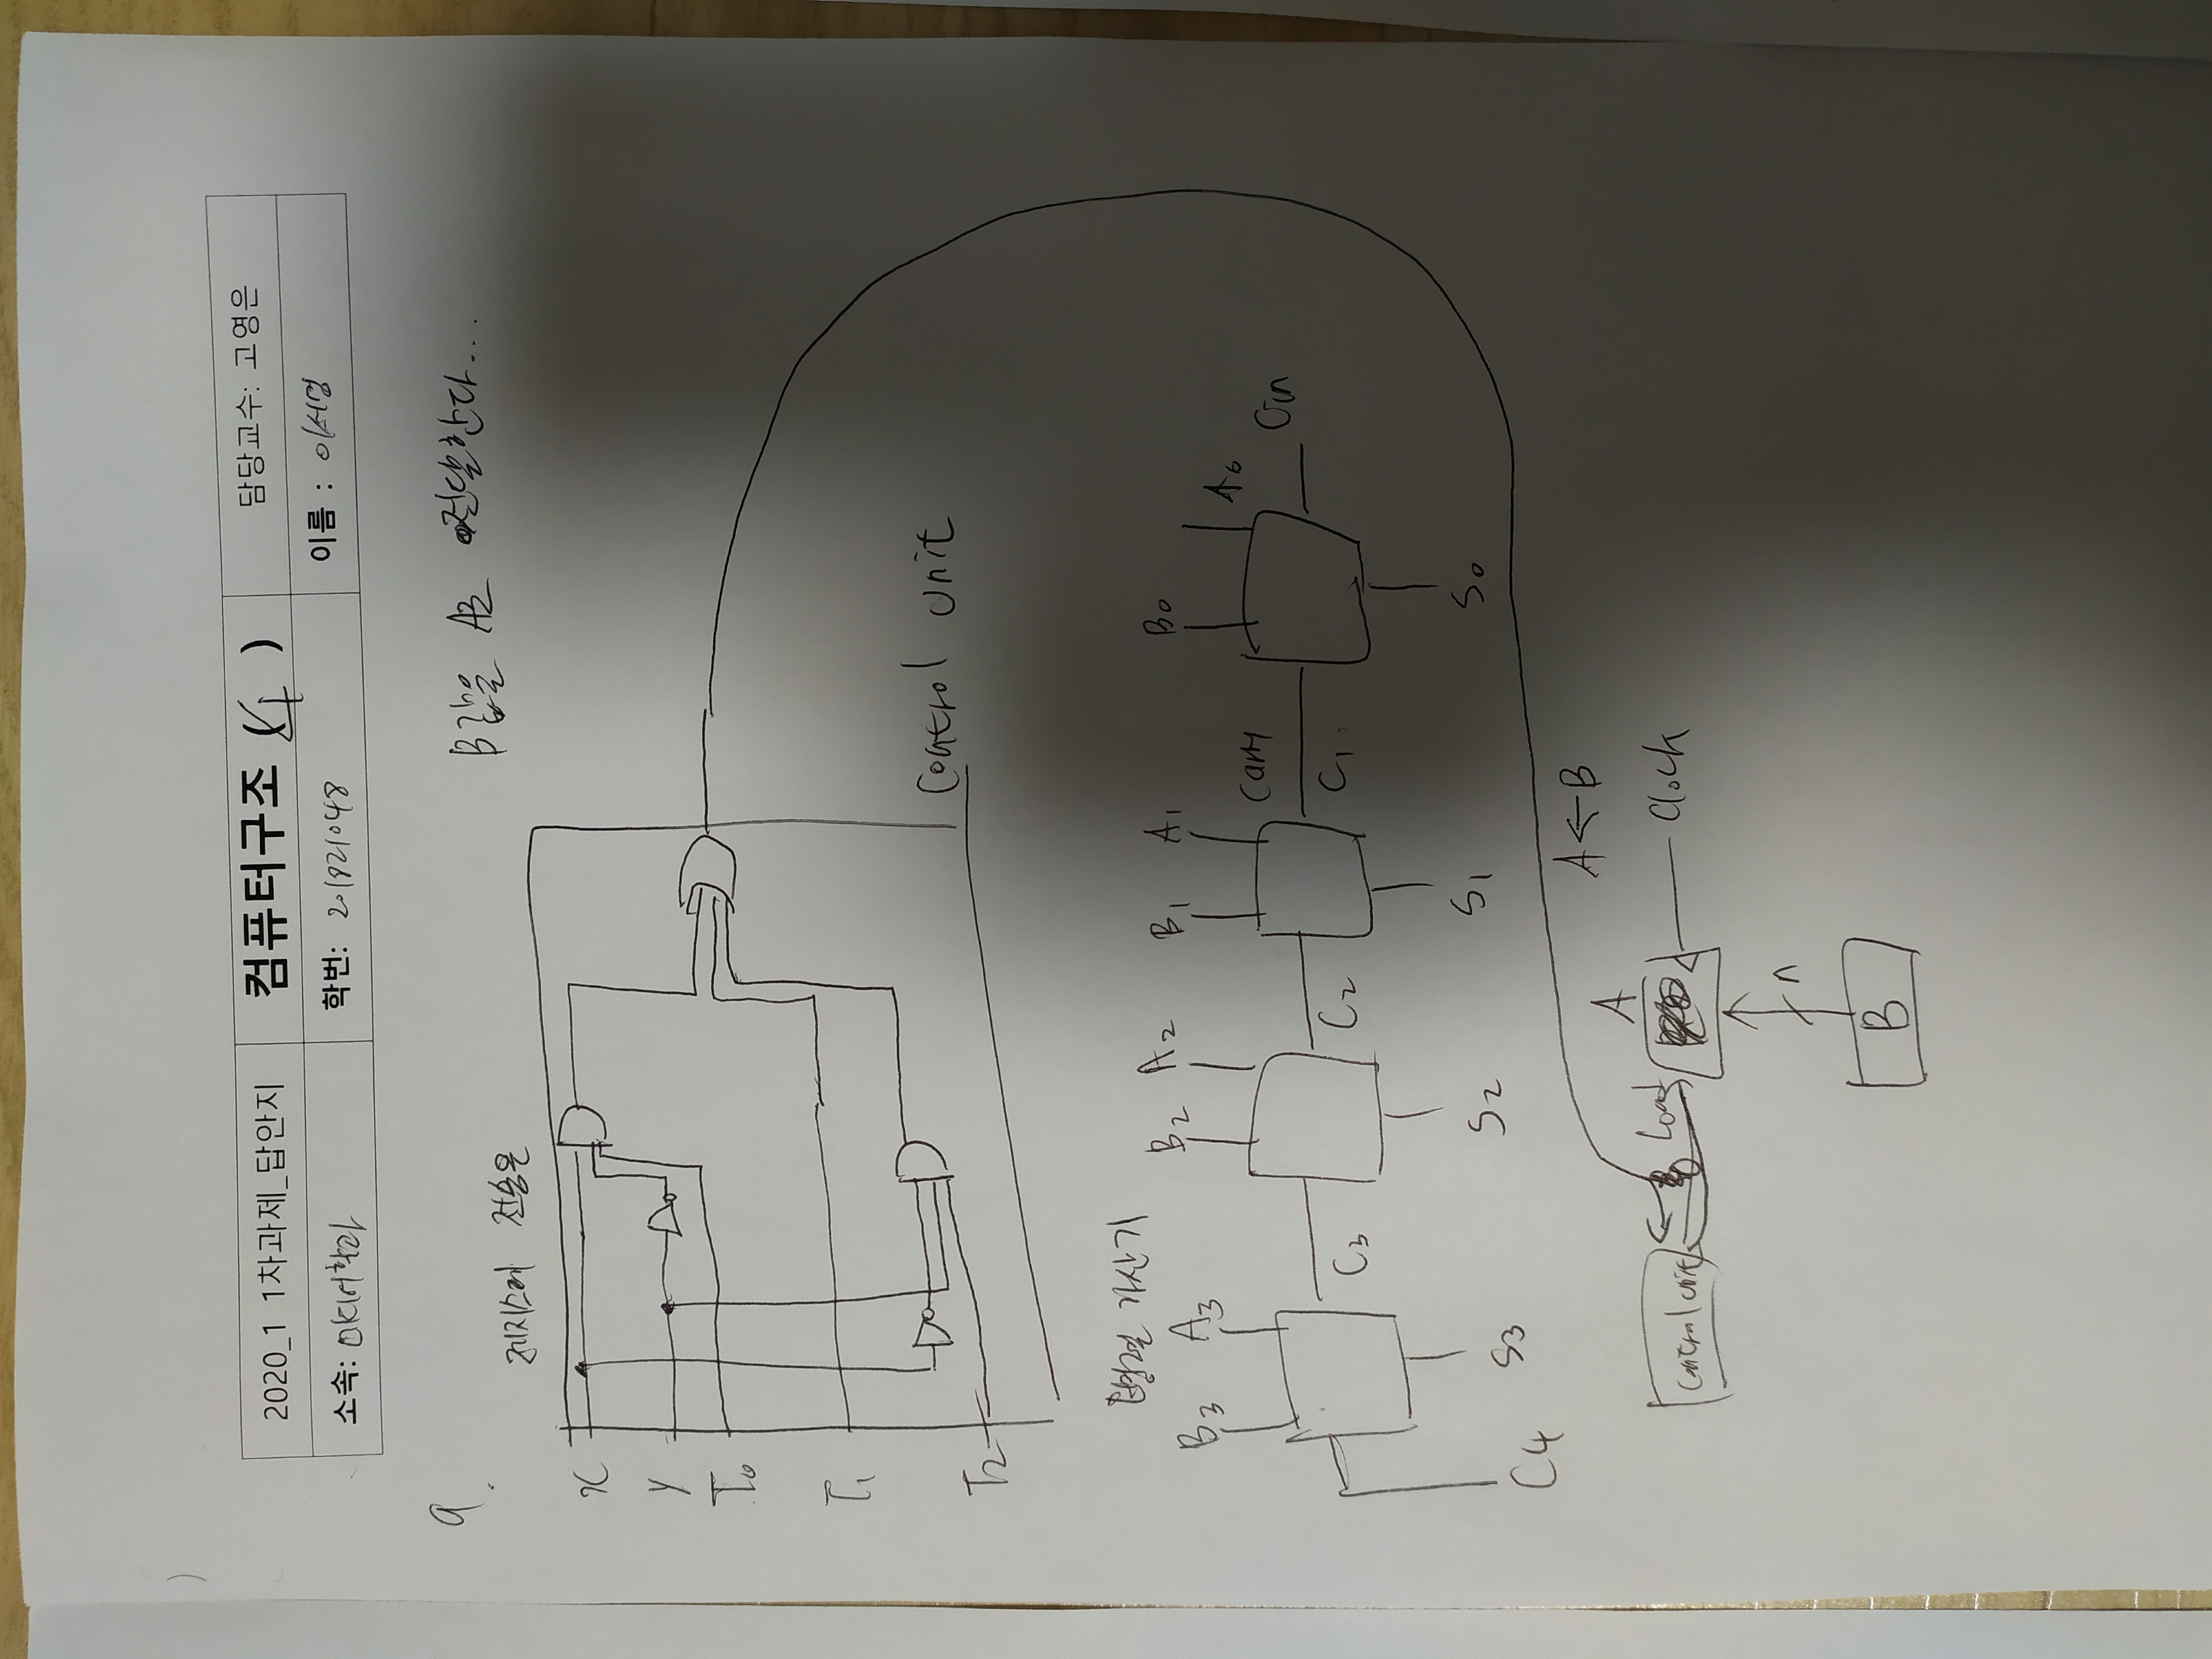 2020_1 1차과제_답안지
컴퓨터구조 (4)
담당교수: 고영은
소속:
학번: 201821048
이름 :
9.
B값을 A로 전달한다...
레지스터 전송은
x
y
T0
T1
T2
Control unit
병렬 가산기
B3 A3 B2 A2 B1 A1 B0 A0
Carry
Cin
C3 C2 C1
C4
S3 S2 S1 S0
A←B
A
Control unit
Load
Clock
n
B